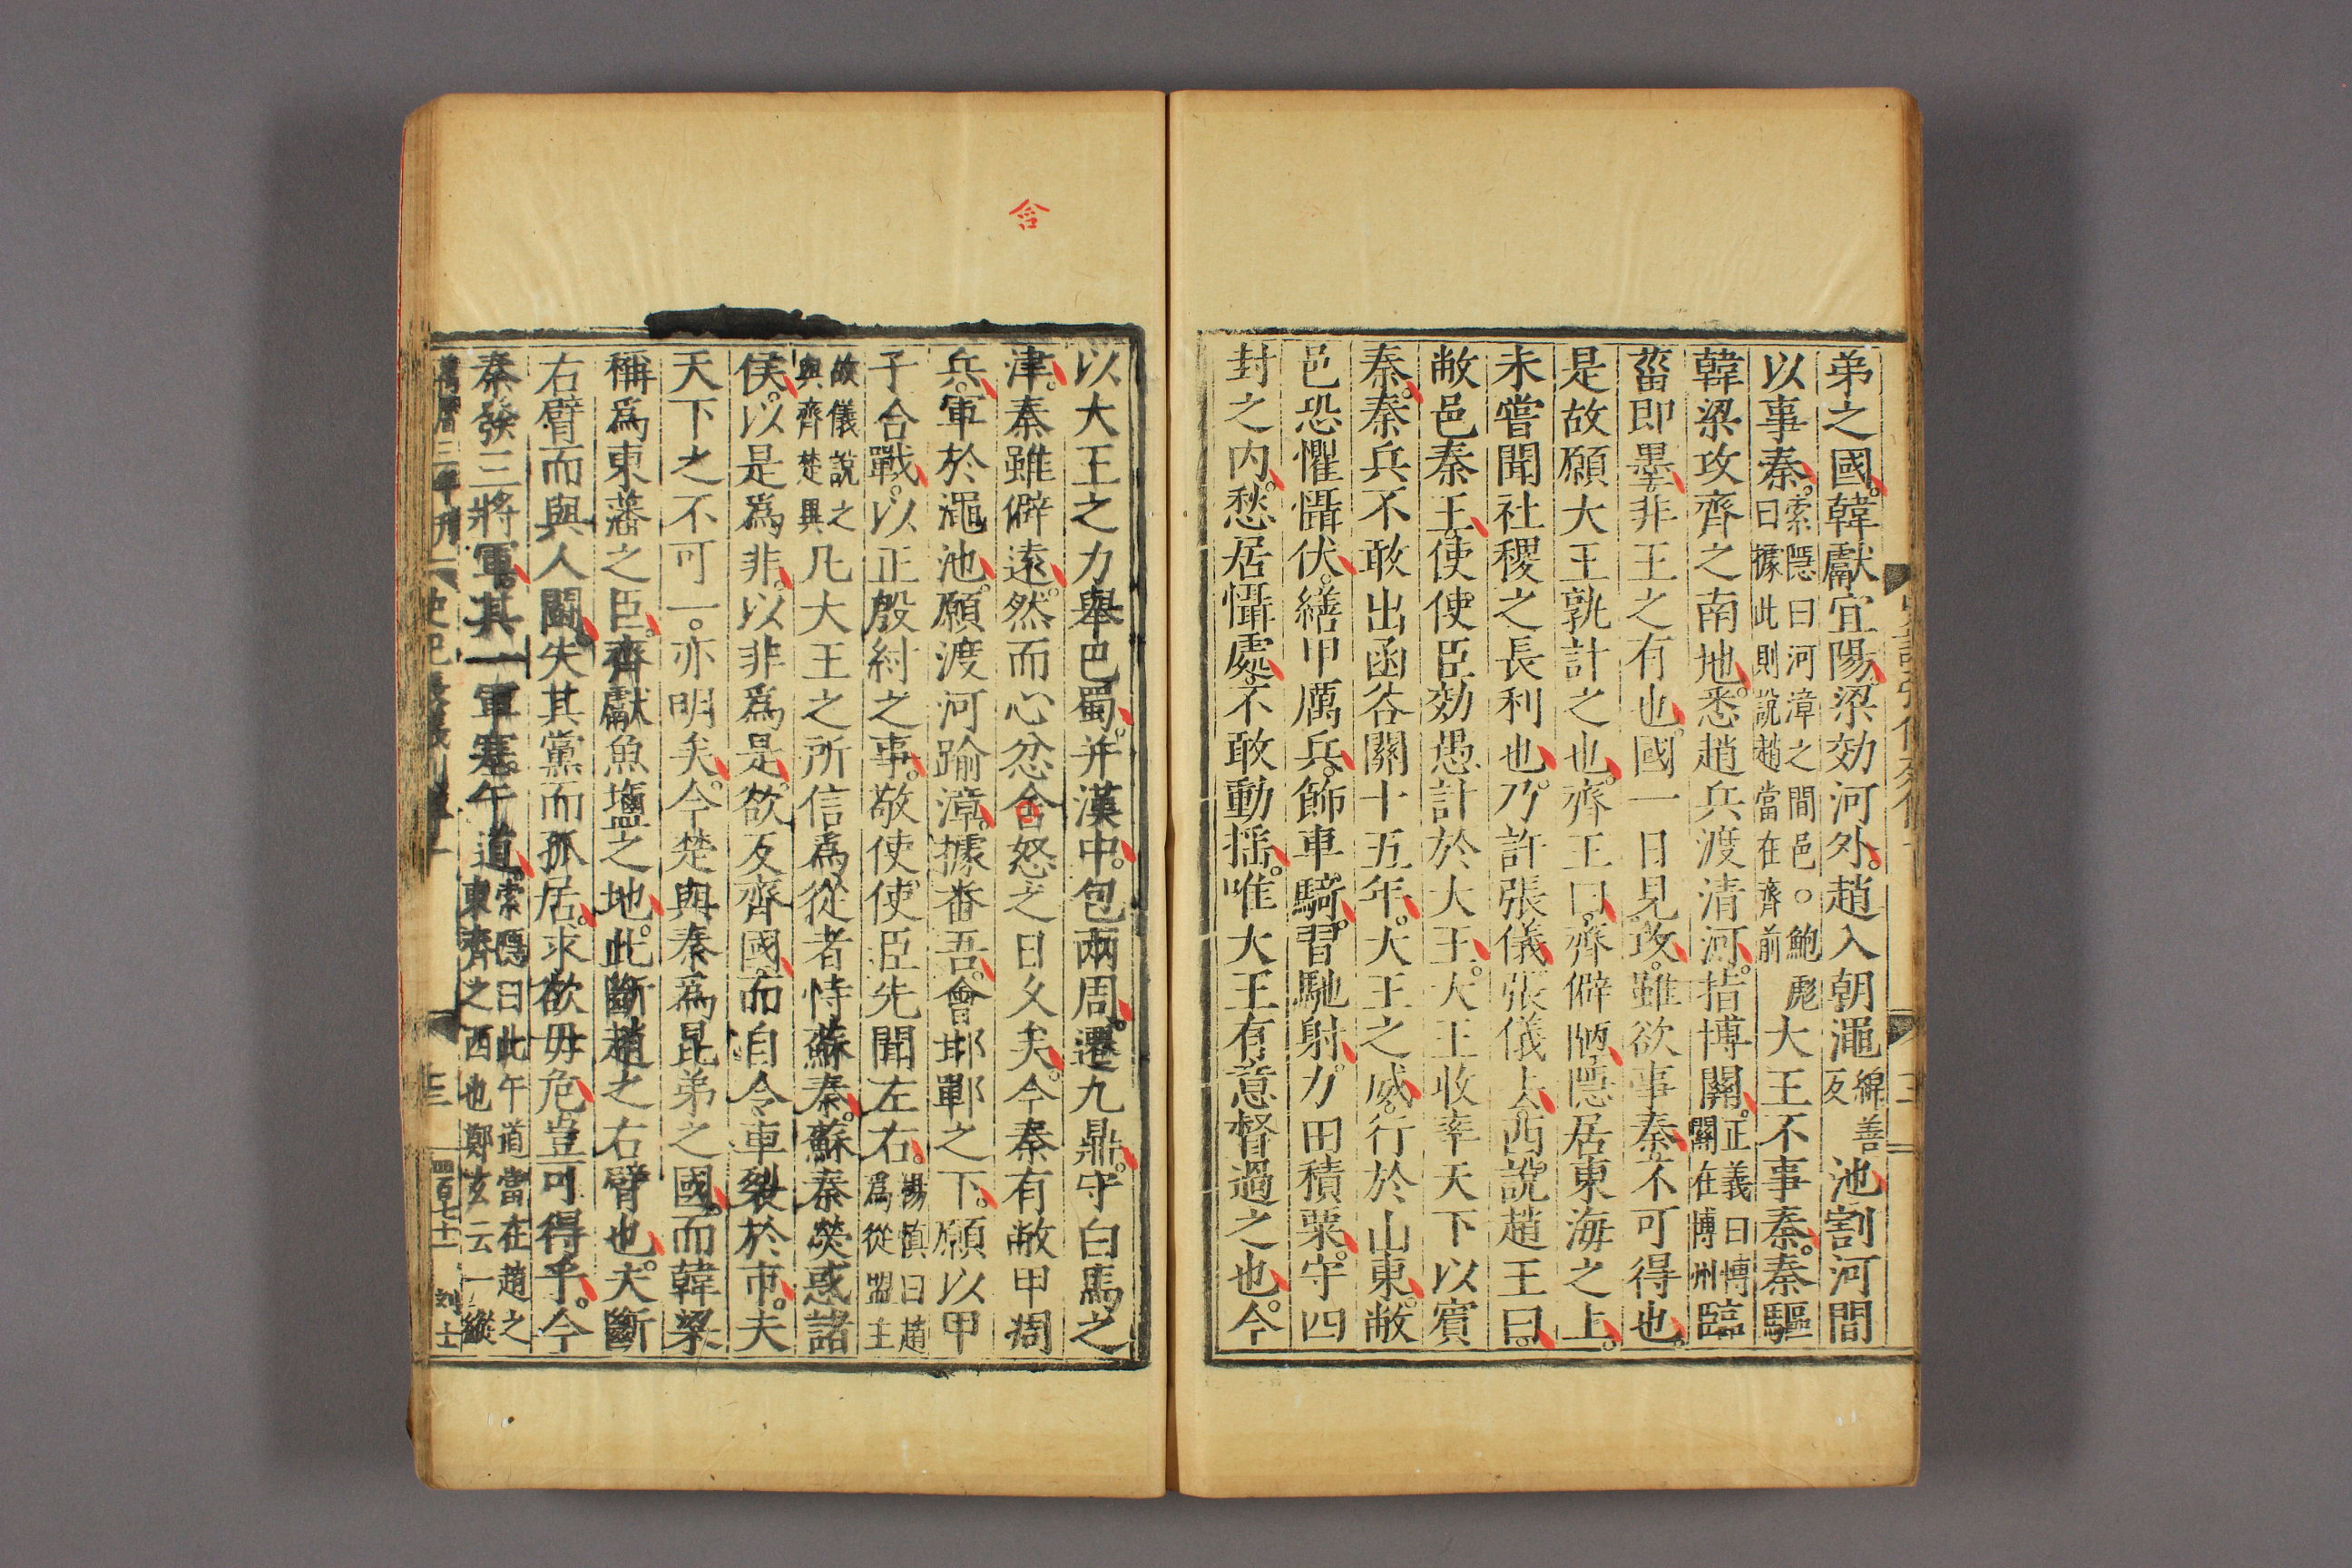 弟之國韓獻宜陽梁効河外趙入朝澠綿善反池割河間
以事秦索隱曰河漳之間邑○鮑彪曰據此則說趙當在齊前大王不事秦秦驅
韓梁攻齊之南地悉趙兵渡清河指博關正義曰博關在博州臨
菑即墨非王之有也國一日見攻雖欲事秦不可得也
是故願大王孰計之也齊王曰齊僻陋隱居東海之上
未嘗聞社稷之長利也乃許張儀張儀去西說趙王曰
敝邑秦王使使臣効愚計於大王大王收率天下以賓
秦秦兵不敢出函谷關十五年大王之威行於山東敝
邑恐懼懾伏繕甲厲兵飾車騎習馳射力田積粟守四
封之內愁居懾處不敢動揺唯大王有意督過之也今
以大王之力舉巴蜀并漢中包兩周遷九鼎守白馬之
津秦雖僻遠然而心忿含怒之日久矣今秦有敝甲凋
兵軍於澠池願渡河踰漳據番吾會邯鄲之下願以甲
子合戰以正殷紂之事敬使使臣先聞左右楊慎曰趙為從盟主
故儀說之與齊楚異凡大王之所信爲從者恃蘇秦蘇秦熒惑諸
侯以是爲非以非爲是欲反齊國而自令車裂於市夫
天下之不可一亦明矣今楚與秦爲昆弟之國而韓梁
稱爲東藩之臣齊獻魚鹽之地此斷趙之右臂也夫斷
右臂而與人鬬失其黨而孤居求欲毋危豈可得乎今
秦發三將軍其一軍塞午道索隱曰此午道當在趙之東齊之西也鄭玄云一縱
萬曆三年刊 史記 張儀列傳十 十三 四百七十一 刘士
含